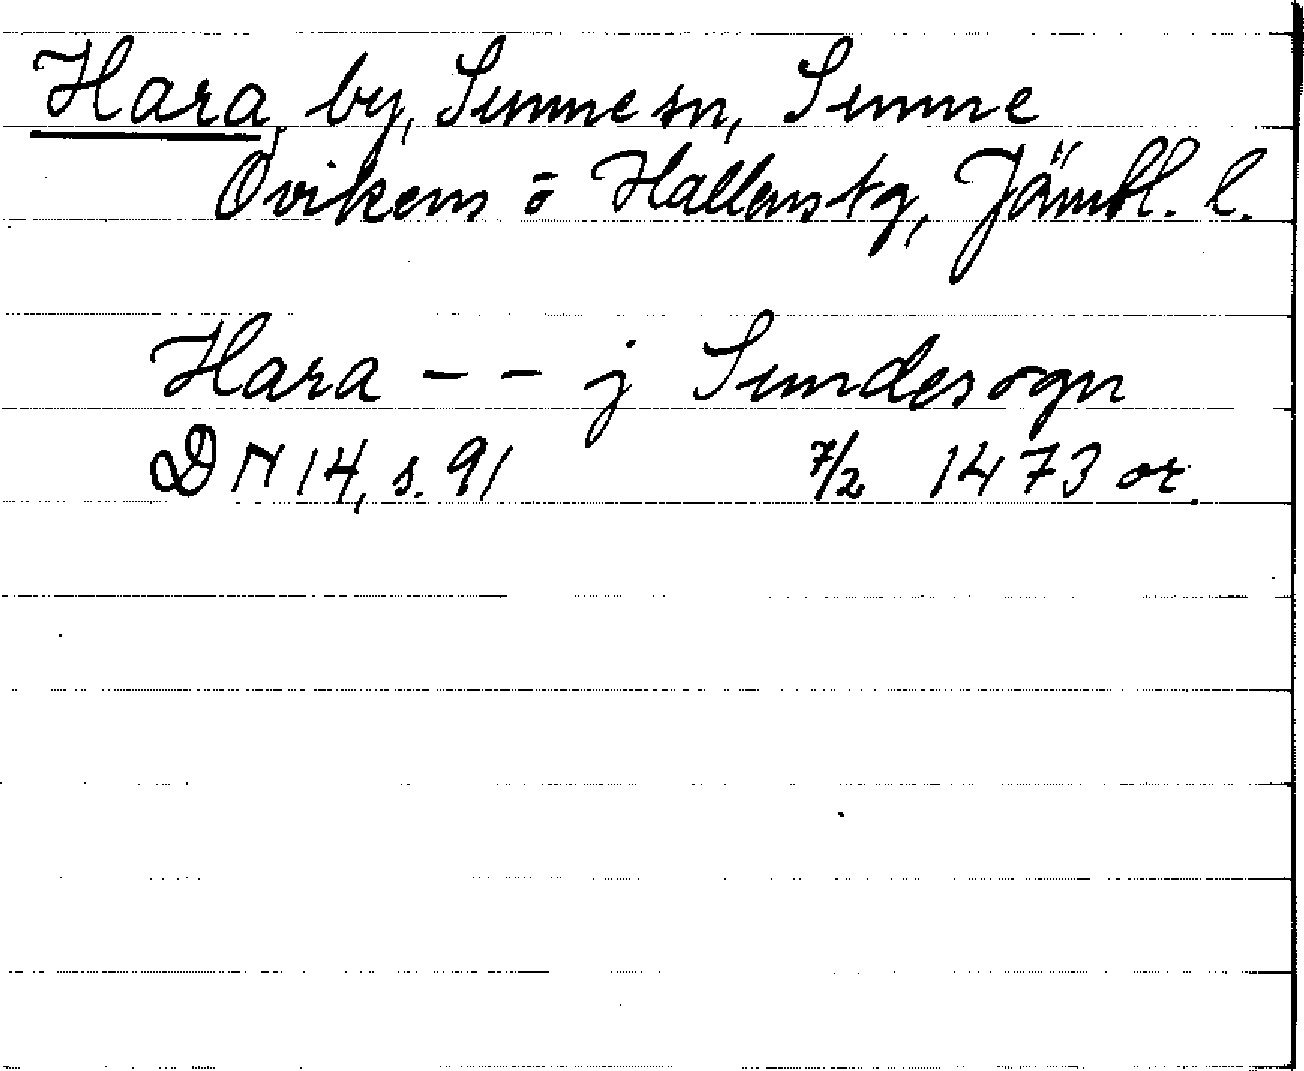 Hara, by, Sunne sn, Sunne
Ovikens o Hallens tg, Jämtl. l.
Hara - - j Sundesogn
DN 14, s. 91 7/2 1473 or.